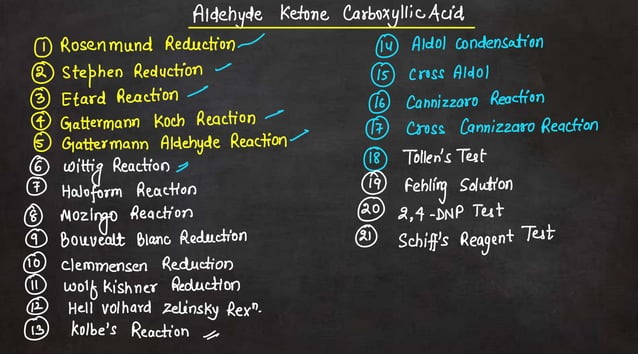 Aldehyde Ketone Carboxyllic Acid
1 Rosenmund Reduction
2 Stephen Reduction
3 Etard Reaction
4 Gattermann Koch Reaction
5 Gattermann Aldehyde Reaction
6 Wittig Reaction
7 Haloform Reaction
8 Mozingo Reaction
9 Bouvealt Blanc Reduction
10 Clemmensen Reduction
11 Wolf Kishner Reduction
12 Hell Volhard Zelinsky Rexⁿ.
13 Kolbe's Reaction
14 Aldol Condensation
15 Cross Aldol
16 Cannizzaro Reaction
17 Cross Cannizzaro Reaction
18 Tollen's Test
19 Fehling Solution
20 2,4-DNP Test
21 Schiff's Reagent Test